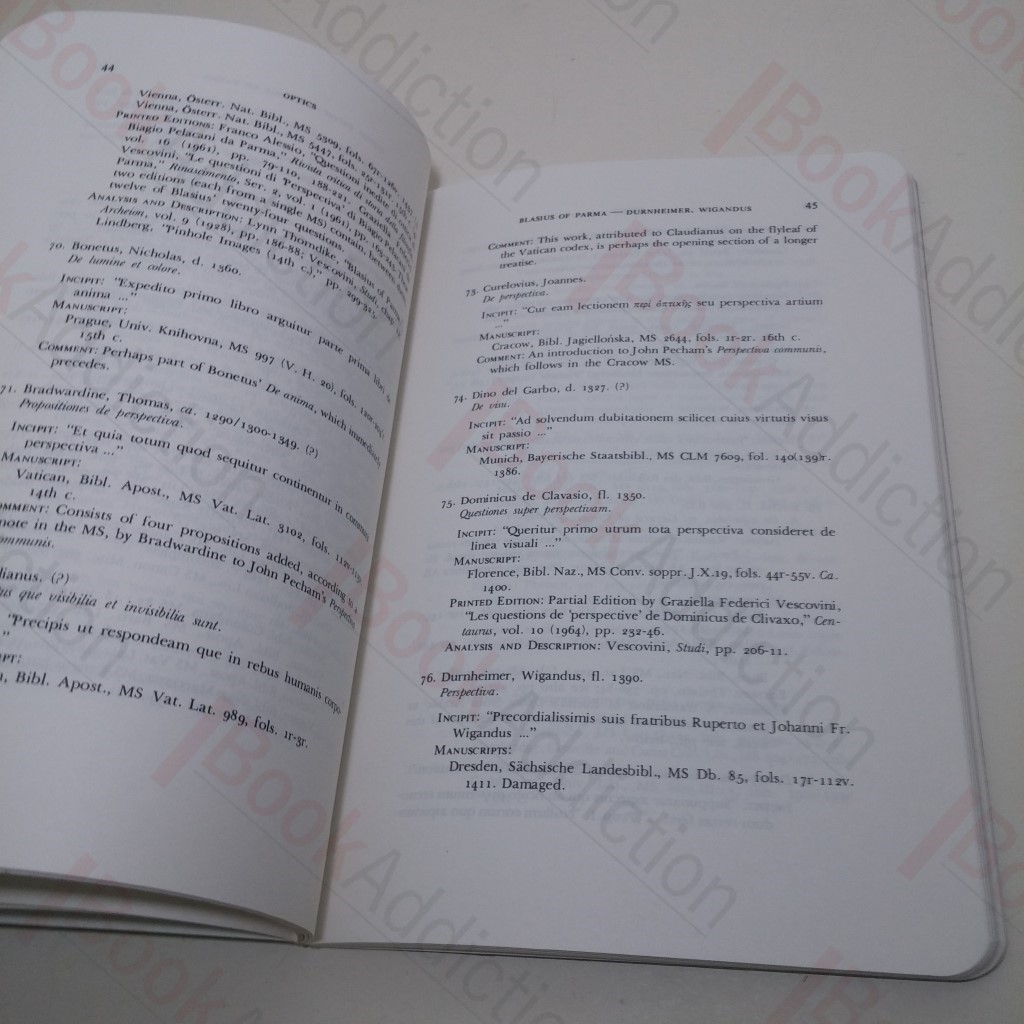 44
OPTICS
Vienna, Österr. Nat. Bibl., MS 5309, fols.
Vienna, Österr. Nat. Bibl., MS 5447, fols.
PRINTED EDITIONS: Franco Alessio, "Questioni inedite di
Biagio Pelacani da Parma," Rivista critica di storia della
vol. 16 (1961), pp. 79-110, 188-221. Graziella Federici
Vescovini, "Le questioni di 'Perspectiva' di Biagio Pelacani
Parma," Rinascimento, Ser. 2, vol. 1 (1961), pp.
two editions (each from a single MS) contain, between them,
twelve of Blasius' twenty-four questions.
ANALYSIS AND DESCRIPTION: Lynn Thorndike, "Blasius of Parma,"
Archeion, vol. 9 (1928), pp. 186-88; Vescovini, Studi,
Lindberg, "Pinhole Images (14th c.)," pp. 299-315.
70. Bonetus, Nicholas, d. 1360.
De lumine et colore.
INCIPIT: "Expedito primo libro arguitur parte prima libri de
anima ..."
MANUSCRIPT:
Prague, Univ. Knihovna, MS 997 (V. H. 20), fols.
15th c.
COMMENT: Perhaps part of Bonetus' De anima, which immediately
precedes.
71. Bradwardine, Thomas, ca. 1290/1300-1349. (?)
Propositiones de perspectiva.
INCIPIT: "Et quia totum quod sequitur continentur in communi
perspectiva ..."
MANUSCRIPT:
Vatican, Bibl. Apost., MS Vat. Lat. 3102, fols.
14th c.
OMMENT: Consists of four propositions added, according to a
note in the MS, by Bradwardine to John Pecham's Perspectiva
ommunis.
dianus. (?)
us que visibilia et invisibilia sunt.
"Precipis ut respondeam que in rebus humanis corpo-
"
PT:
, Bibl. Apost., MS Vat. Lat. 989, fols. 1r-3r.
BLASIUS OF PARMA — DURNHEIMER, WIGANDUS 45
COMMENT: This work, attributed to Claudianus on the flyleaf of
the Vatican codex, is perhaps the opening section of a longer
treatise.
73. Curelovius, Joannes.
De perspectiva.
INCIPIT: "Cur eam lectionem περὶ ὀπτικῆς seu perspectiva artium
..."
MANUSCRIPT:
Cracow, Bibl. Jagiellońska, MS 2644, fols. 1r-2r. 16th c.
COMMENT: An introduction to John Pecham's Perspectiva communis,
which follows in the Cracow MS.
74. Dino del Garbo, d. 1327. (?)
De visu.
INCIPIT: "Ad solvendum dubitationem scilicet cuius virtutis visus
sit passio ..."
MANUSCRIPT:
Munich, Bayerische Staatsbibl., MS CLM 7609, fol. 140(139)r.
1386.
75. Dominicus de Clavasio, fl. 1350.
Questiones super perspectivam.
INCIPIT: "Queritur primo utrum tota perspectiva consideret de
linea visuali ..."
MANUSCRIPT:
Florence, Bibl. Naz., MS Conv. soppr. J.X.19, fols. 44r-55v. Ca.
1400.
PRINTED EDITION: Partial Edition by Graziella Federici Vescovini,
"Les questions de 'perspective' de Dominicus de Clivaxo," Cen-
taurus, vol. 10 (1964), pp. 232-46.
ANALYSIS AND DESCRIPTION: Vescovini, Studi, pp. 206-11.
76. Durnheimer, Wigandus, fl. 1390.
Perspectiva.
INCIPIT: "Precordialissimis suis fratribus Ruperto et Johanni Fr.
Wigandus ..."
MANUSCRIPTS:
Dresden, Sächsische Landesbibl., MS Db. 85, fols. 17r-112v.
1411. Damaged.
BookAddiction